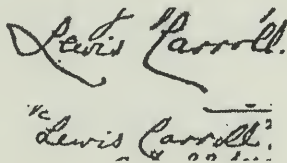 Lewis Carroll.
"Lewis Carroll"